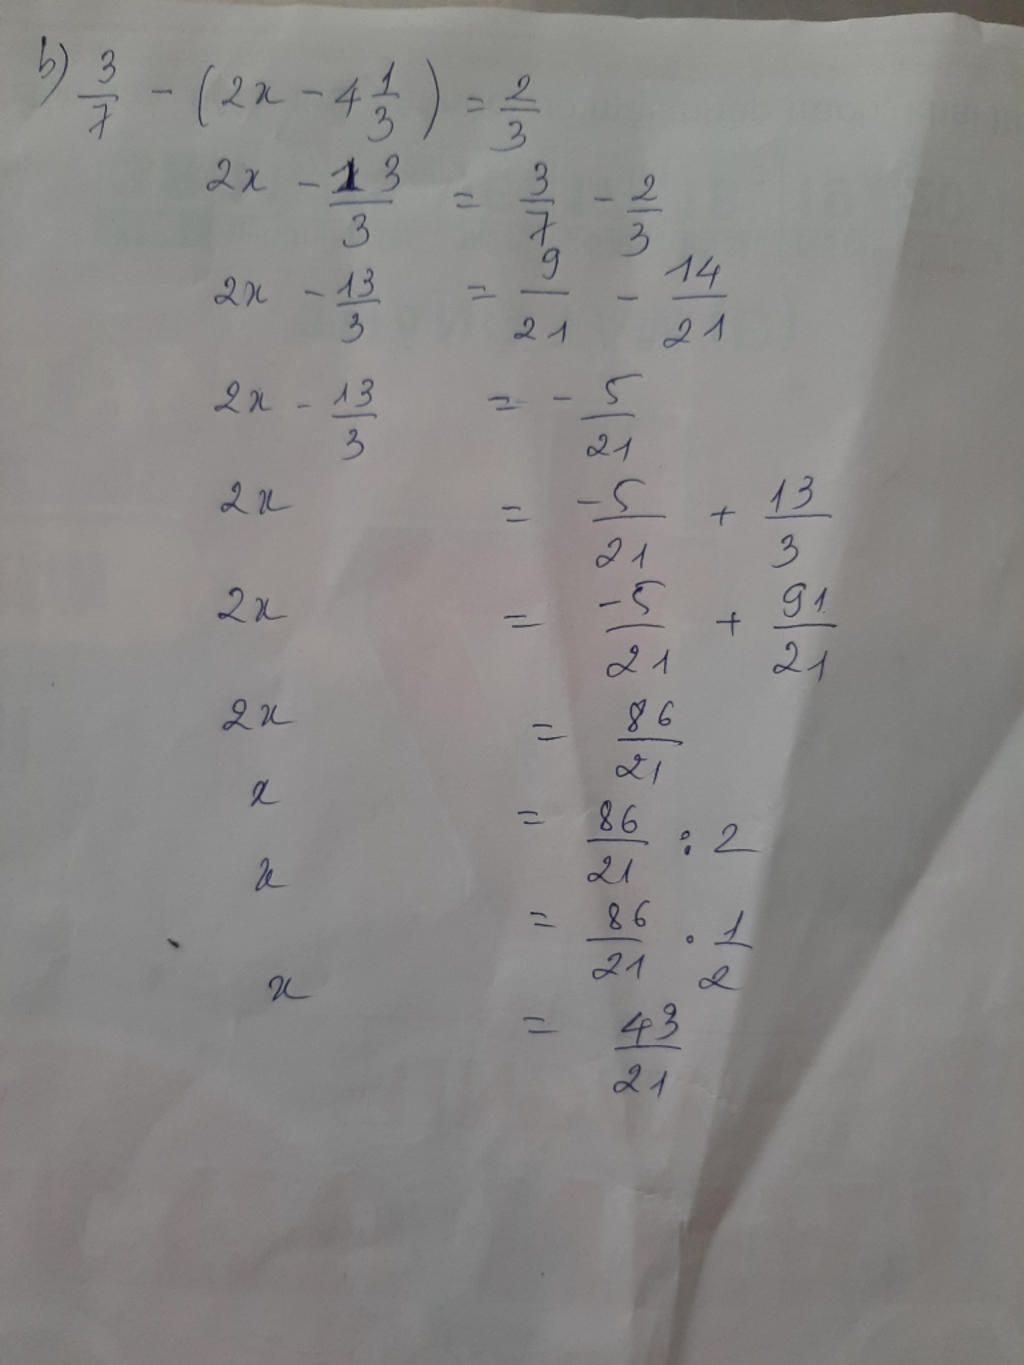 b) 3/7 - (2x - 4 1/3) = 2/3
2x - 13/3 = 3/7 - 2/3
2x - 13/3 = 9/21 - 14/21
2x - 13/3 = - 5/21
2x = -5/21 + 13/3
2x = -5/21 + 91/21
2x = 86/21
x = 86/21 : 2
x = 86/21 . 1/2
x = 43/21